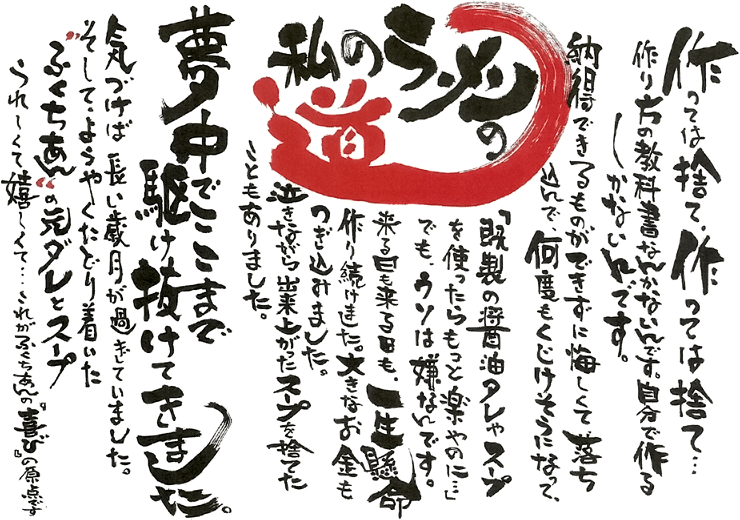 私のラーメンの道
作っては捨て、作っては捨て…
作り方の教科書なんかないんです。自分で作る
しかないんです。
納得できるものができずに悔しくて、落ち
込んで、何度もくじけそうになって、
「既製の醤油タレやスープ
を使ったらもっと楽やのに…」
でも、ウソは嫌なんです。
来る日も来る日も、一生懸命
作り続けました。大きなお金も
つぎ込みました。
泣きながら出来上がったスープを捨てた
こともありました。
夢中でここまで
駆け抜けてきました。
気づけば長い歳月が過ぎていました。
そして、ようやくたどり着いた
“ふくちあん”の元ダレとスープ
うれしくて嬉しくて…これがふくちあんの『喜び』の原点です